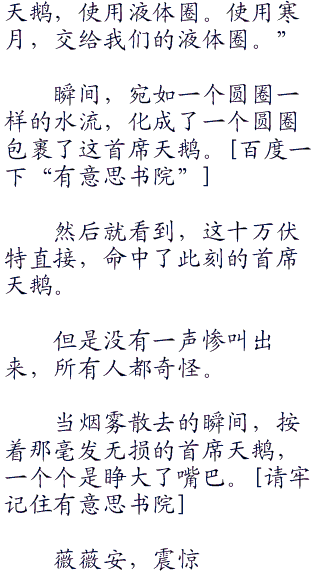 天鹅，使用液体圈。使用寒
月，交给我们的液体圈。”
瞬间，宛如一个圆圈一
样的水流，化成了一个圆圈
包裹了这首席天鹅。[百度一
下“有意思书院”]
然后就看到，这十万伏
特直接，命中了此刻的首席
天鹅。
但是没有一声惨叫出
来，所有人都奇怪。
当烟雾散去的瞬间，按
着那毫发无损的首席天鹅，
一个个是睁大了嘴巴。[请牢
记住有意思书院]
薇薇安，震惊